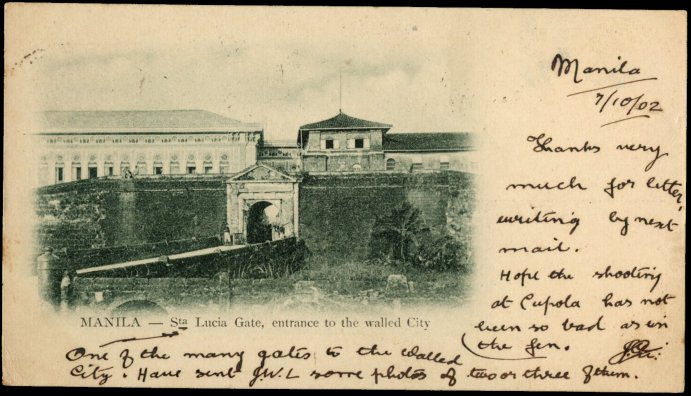 Manila
7/10/02
Thanks very
much for letter,
writing by next
mail.
Hope the shooting
at Cupola has not
been so bad as in
the fen.
MANILA — Sta Lucia Gate, entrance to the walled City
One of the many gates to the walled
City. Have sent J.W.L some photos of two or three of them.